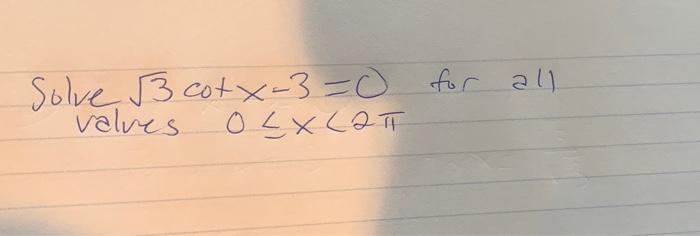 Solve √3 cotx-3=0 for all
values 0≤x<2π